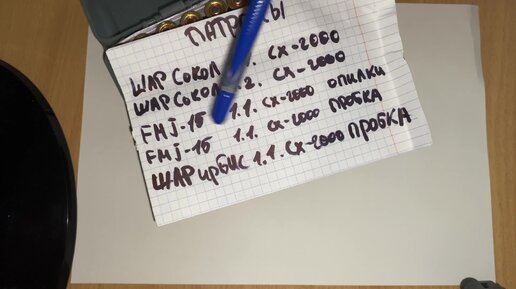 ПАТРОНЫ
ШАР СОКОЛ СХ-2000
ШАР СОКОЛ 2. СХ-2000
FMJ-15 1.1. СХ-2000 ОПИЛКИ
FMJ-15 1.1. СХ-2000 ПРОБКА
ШАР ирбис 1.1. СХ-2000 ПРОБКА